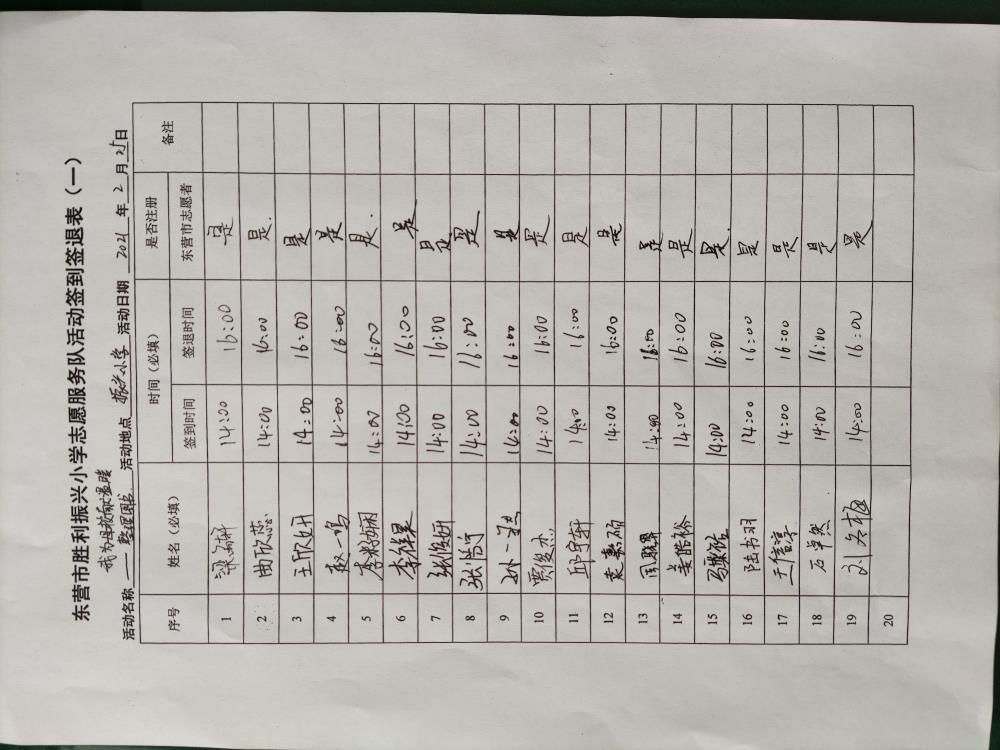 东营市胜利振兴小学志愿服务队活动签到签退表（一）
我为母校献温暖
活动名称 ——整理图书 活动地点 振兴小学 活动日期 2021 年 2 月 25 日
序号 姓名（必填） 时间（必填） 是否注册东营市志愿者 备注
签到时间 签退时间
1 14:00 16:00 是
2 曲欣蕊 14:00 16:00 是
3 王欣妍 14:00 16:00 是
4 赵一鸣 14:00 16:00 是
5 李米娴 14:00 16:00 是
6 李祥昊 14:00 16:00 是
7 张悦妍 14:00 16:00 是
8 张 宁 14:00 16:00 是
9 孙一 14:00 16:00 是
10 贾俊杰 14:00 16:00 是
11 邱宇轩 14:00 16:00 是
12 袁嘉硕 14:00 16:00 是
13 周 14:00 16:00 是
14 姜皓裕 14:00 16:00 是
15 马 14:00 16:00 是
16 陆书羽 14:00 16:00 是
17 王信享 14:00 16:00 是
18 石卓然 14:00 16:00 是
19 刘 14:00 16:00 是
20